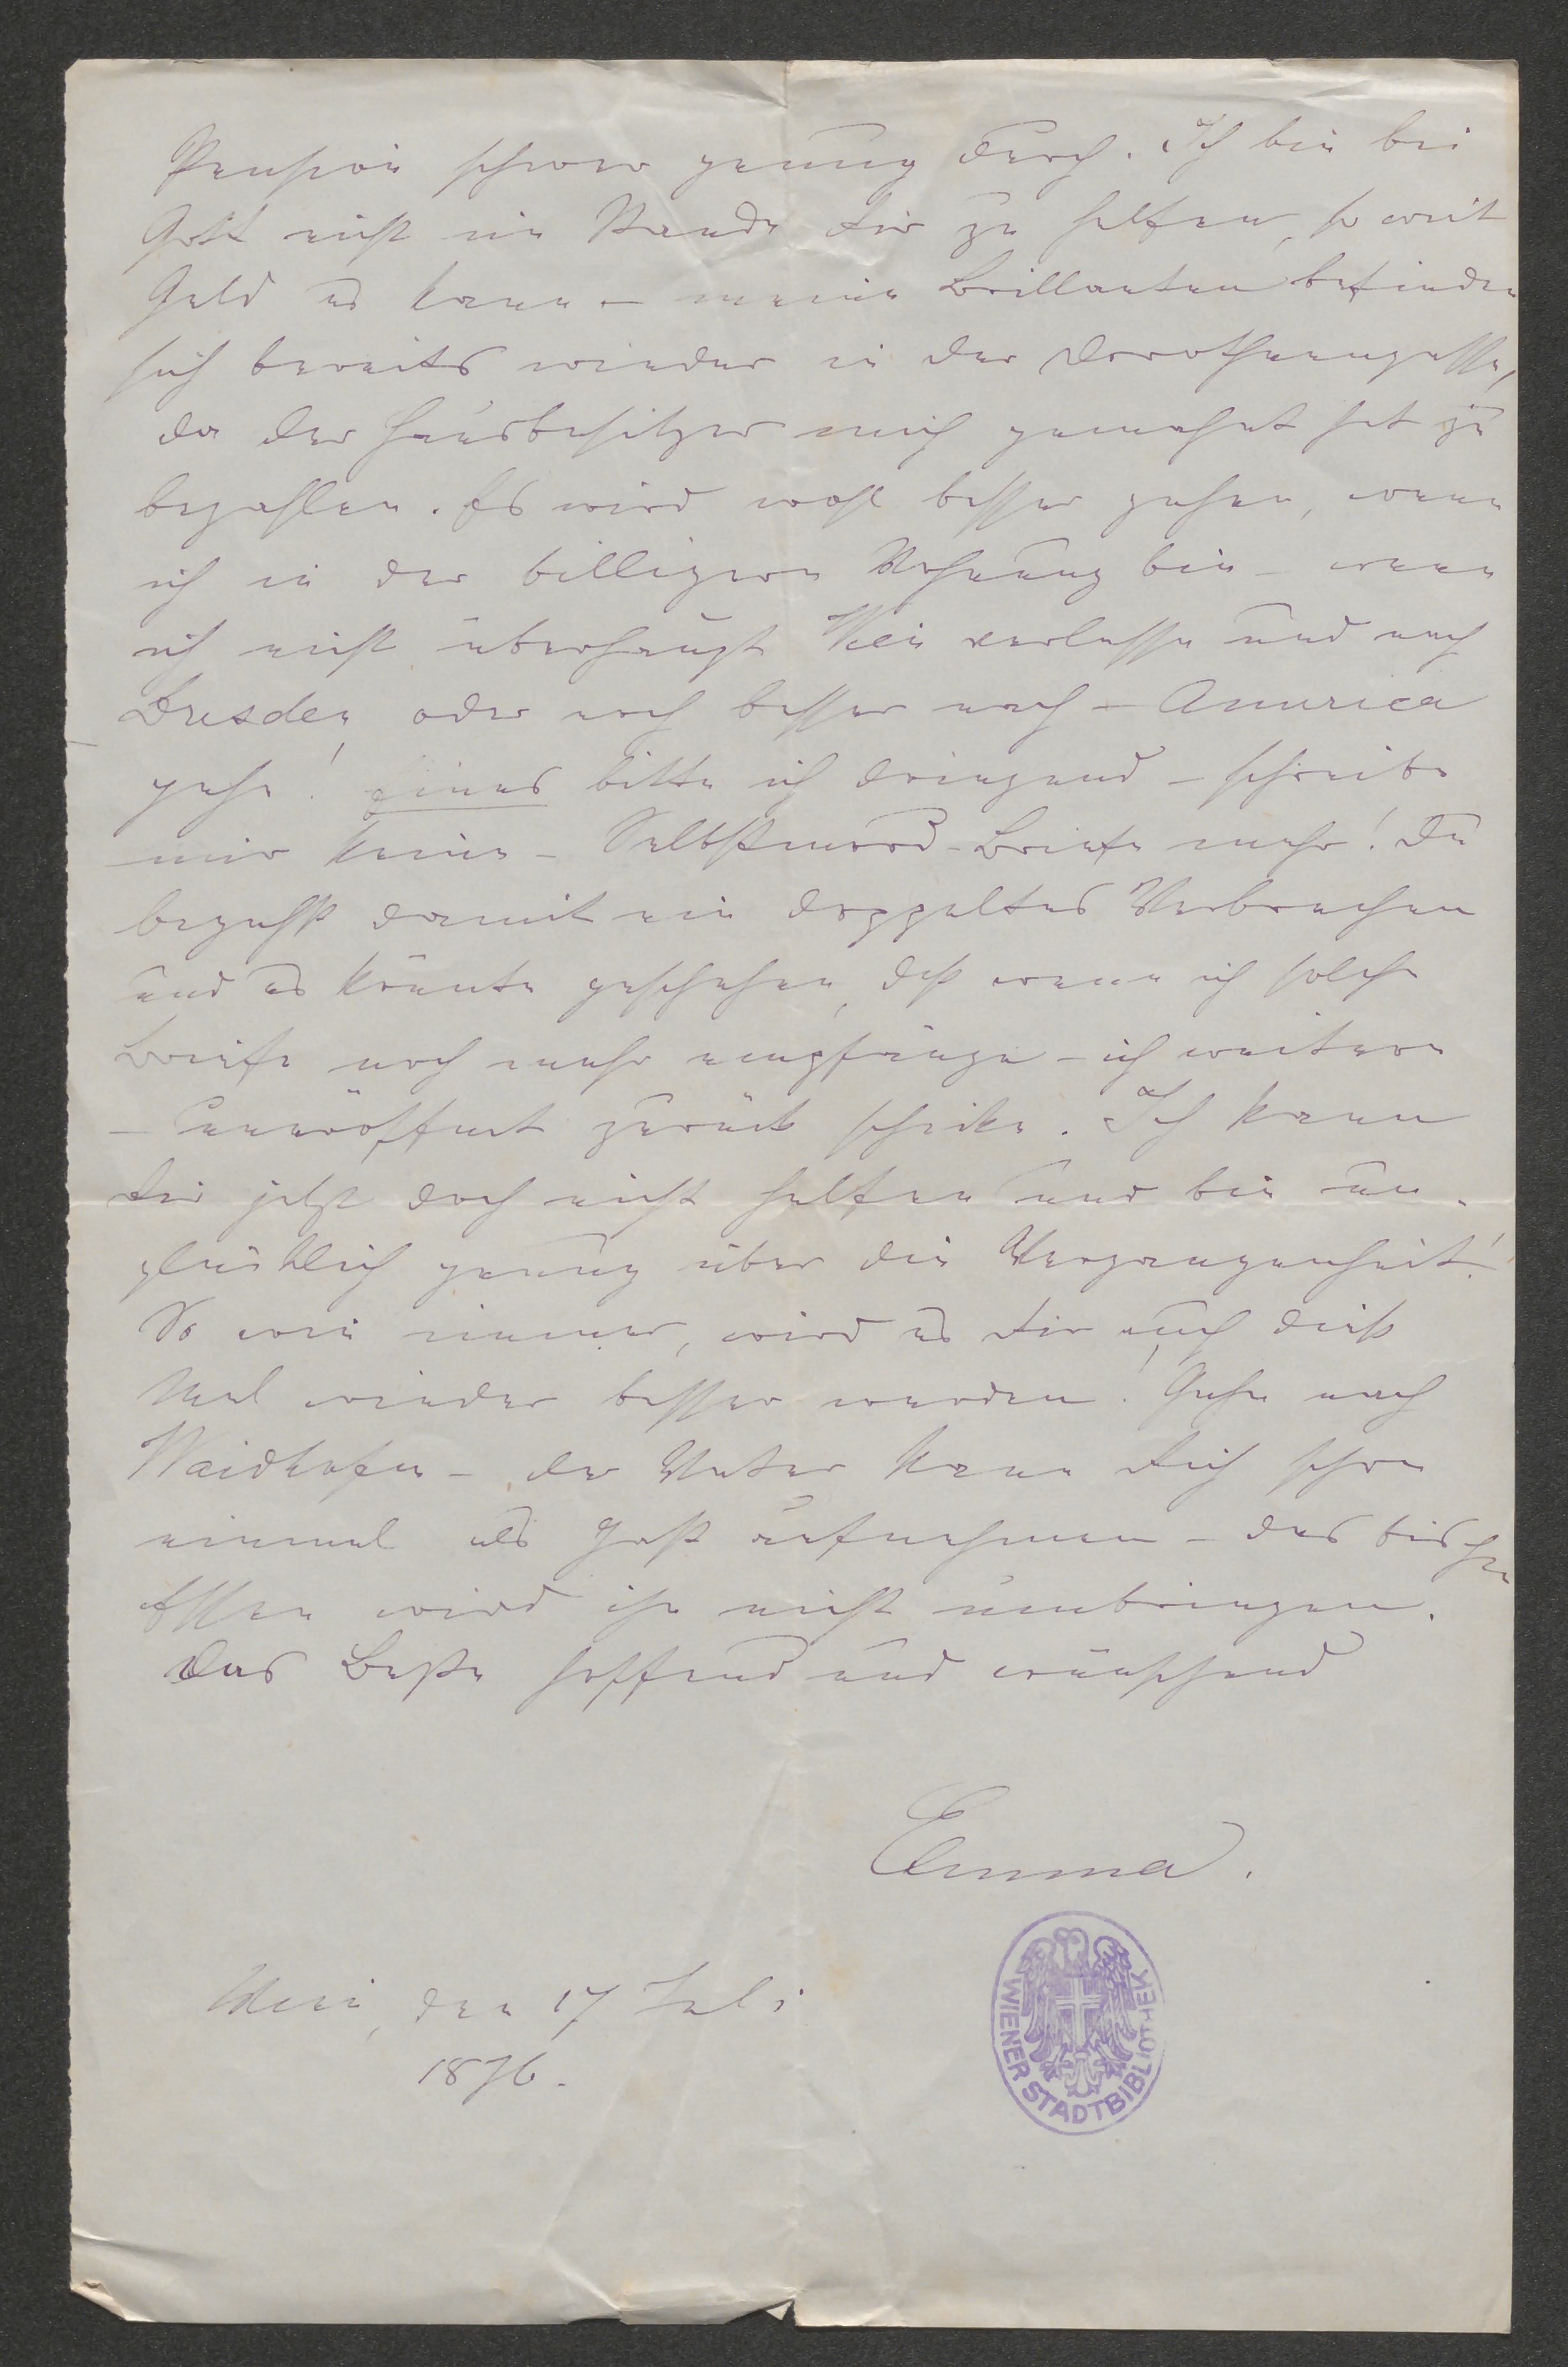 Pension schwer genug durch. Ich bin bei
Gott nicht im Stande dir zu helfen, so weit
Geld es kann – meine Brillanten befinden
sich bereits wieder in der Dorotheengasse,
da der Hausbesitzer mich gemahnt hat zu
bezahlen. Es wird wohl besser gehen, wenn
ich in der billigern Wohnung bin – wenn
ich nicht überhaupt Wien verlasse und nach
Dresden, oder noch besser nach – America
gehe! Eines bitte ich dringend – schreibe
mir keine – Selbstmord-Briefe mehr! Du
begehst damit ein doppeltes Verbrechen
und es könnte geschehen, daß wenn ich solche
Briefe noch mehr empfange – ich weitere
– uneröffnet zurück schicke. Ich kann
dir jetzt doch nicht helfen und bin un-
glücklich genug über die Vergangenheit!
So wie immer, wird es dir auch dieß
Mal wieder besser werden! Gehe nach
Waidhofen – der Vater kann dich schon
einmal als Gast aufnehmen – das bischen
Essen wird ihn nicht umbringen.
Das Beste hoffend und wünschend
Emma.
Wien, den 17 Juli
1876.
WIENER STADTBIBLIOTHEK